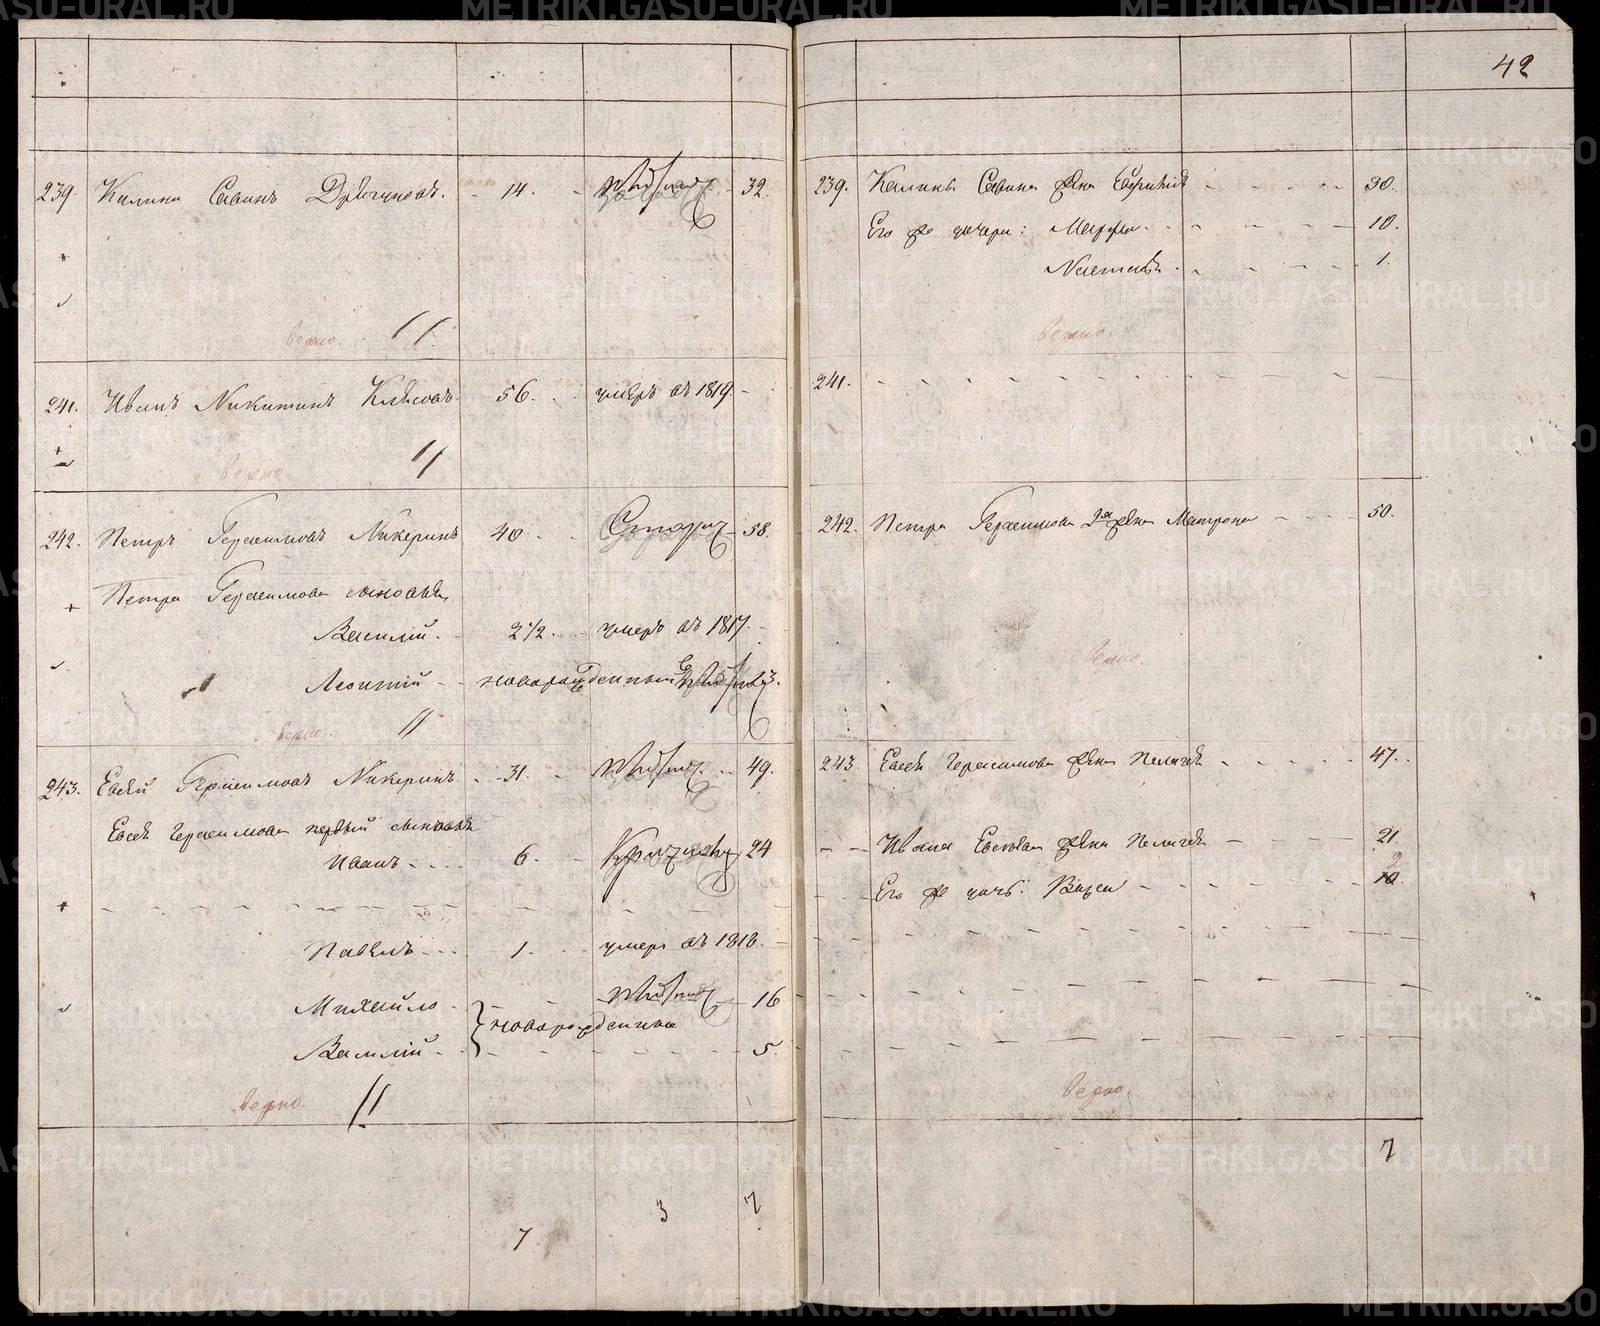 42
239. Калина Савинъ 14. 32.
верно.
241. Иванъ Никитинъ 56. умеръ въ 1819.
верно
242. Петръ Герасимовъ Никеринъ 40 58.
Петра Герасимова сыновья,
Василій. 2 1/2. умеръ въ 1817.
Леонтій новорожденный
верно.
243. Евсей Герасимовъ Никеринъ. 31. 49.
Евсея Герасимова первый
Иванъ 6. 24
Павелъ 1. умеръ въ 1818.
Михайло 16
новорожденные
Василій 5.
верно.
7 3 7
239. Калины Савина жена 30.
Его же дочери: Марфа 10.
1.
верно.
241.
242. Петра Герасимова 2я жена Матрона 50.
верно.
243. Евсея Герасимова жена Пелагея 47.
Ивана Евсеева жена Пелагея 21
Его же дочь:
верно.
7
METRIKI.GASO-URAL.RU